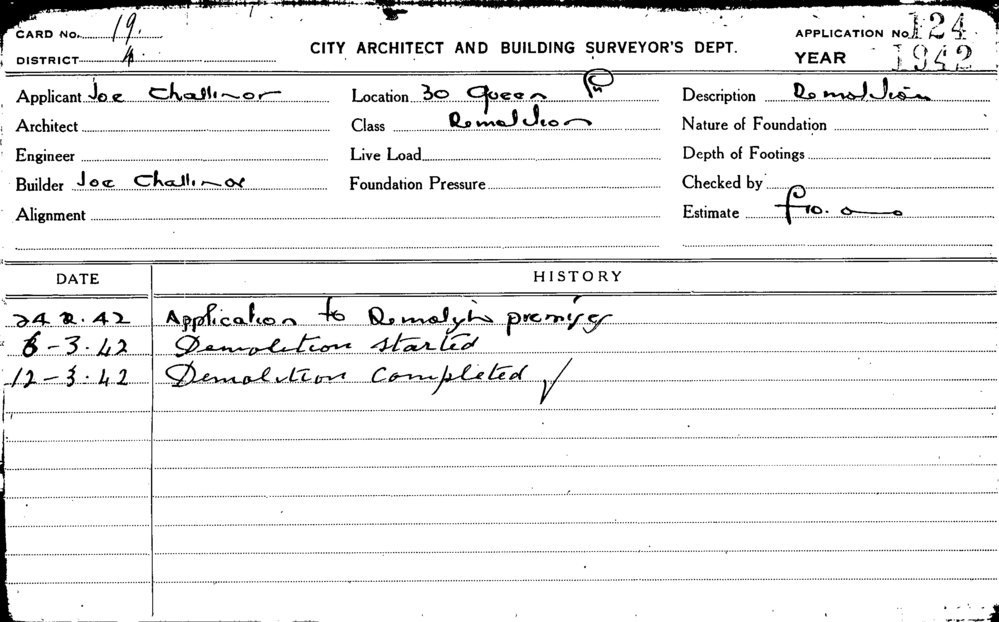 CARD No. 19.
DISTRICT 4
CITY ARCHITECT AND BUILDING SURVEYOR'S DEPT.
APPLICATION No. 124
YEAR 1942
Applicant Joe Challinor
Location 30 Queen
Description Demolition
Architect
Class Demolition
Nature of Foundation
Engineer
Live Load
Depth of Footings
Builder Joe Challinor
Foundation Pressure
Checked by
Alignment
Estimate £10.
DATE HISTORY
24 2. 42 Application to Demolish premises
6-3.42 Demolition started
12-3.42 Demolition completed ✓